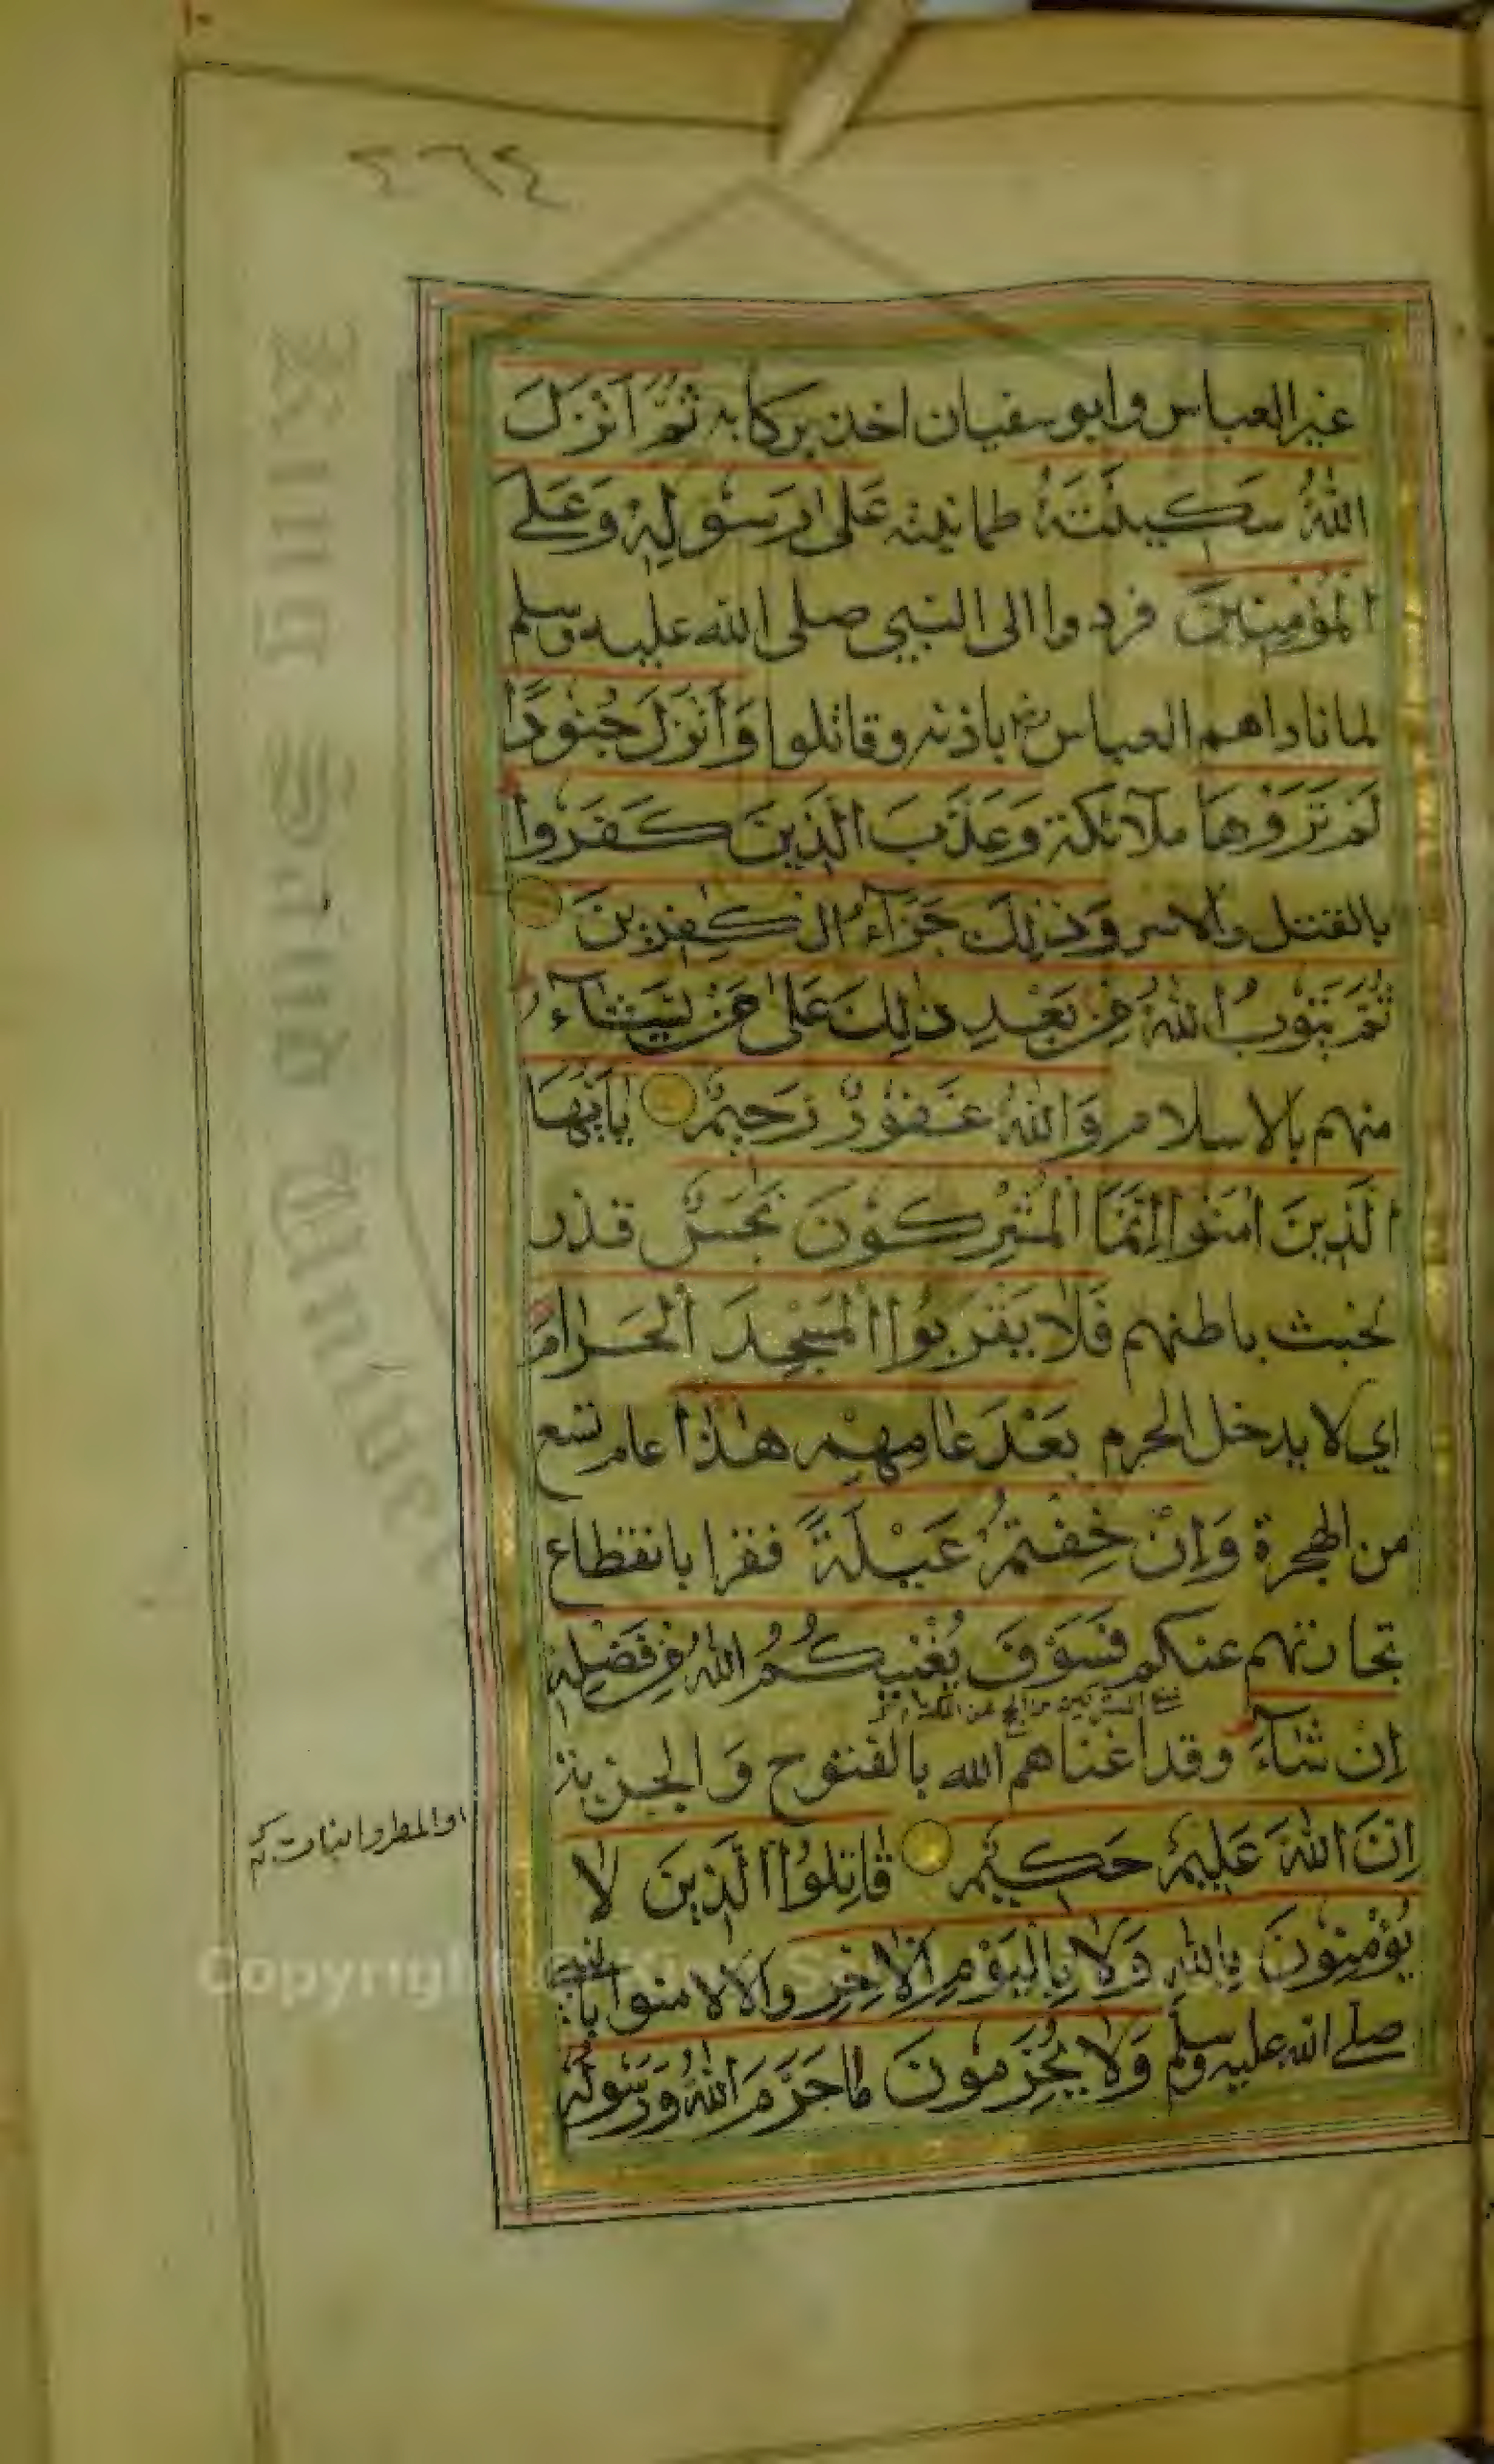 ٢٦٤
غير العباس وابو سفيان اخذ بركابه ثُمَّ اَنْزَلَ
اللّٰهُ سَكِينَتَهُ طمانينه عَلٰى رَسُولِهٖ وَعَلَى
الْمُؤْمِنِينَ فردوا الى النبي صلى الله عليه وسلم
لما ناداهم العباس رض باذنه وقاتلوا وَأَنْزَلَ جُنُودًا
لَمْ تَرَوْهَا ملآئكة وَعَذَّبَ الَّذِينَ كَفَرُوا
بالقتل والاسر وَذٰلِكَ جَزَآءُ الْكٰفِرِينَ
ثُمَّ يَتُوبُ اللّٰهُ مِنْ بَعْدِ ذٰلِكَ عَلٰى مَنْ يَشَآءُ
منهم بالاسلام وَاللّٰهُ غَفُورٌ رَحِيمٌ يٰاَيُّهَا
الَّذِينَ اٰمَنُوا اِنَّمَا الْمُشْرِكُونَ نَجَسٌ قذر
لخبث باطنهم فَلَا يَقْرَبُوا الْمَسْجِدَ الْحَرَامَ
اي لا يدخل الحرم بَعْدَ عَامِهِمْ هٰذَا عام تسع
من الهجرة وَاِنْ خِفْتُمْ عَيْلَةً فقرا بانقطاع
تجارتهم عنكم فَسَوْفَ يُغْنِيكُمُ اللّٰهُ مِنْ فَضْلِهٖ
اِنْ شَآءَ وقد اغناهم الله بالفتوح وَالجزية
اِنَّ اللّٰهَ عَلِيمٌ حَكِيمٌ قَاتِلُوا الَّذِينَ لَا
او المطر وانبات
يُؤْمِنُونَ بِاللّٰهِ وَلَا بِالْيَوْمِ الْاٰخِرِ والا لامنوا بالنبي
صلى الله عليه وسلم وَلَا يُحَرِّمُونَ مَا حَرَّمَ اللّٰهُ وَرَسُولُهُ